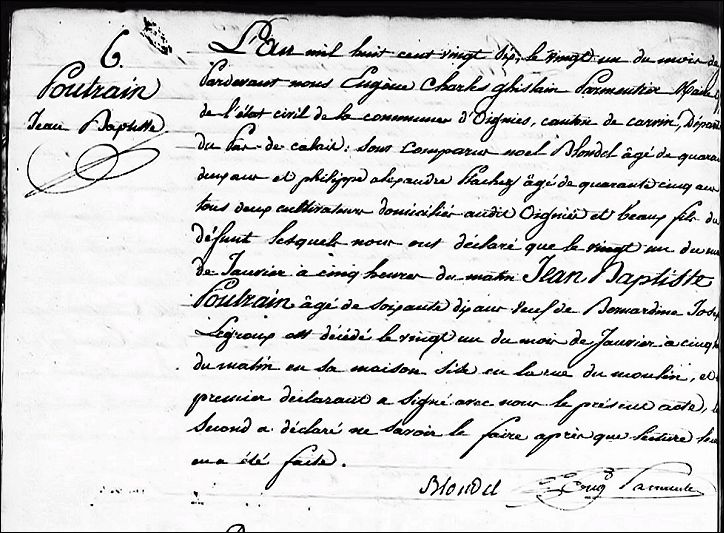 6
Poutrain
Jean Baptiste
L'An mil huit cent vingt six, le vingt un du mois de
Pardevant nous Eugène Charles Ghislain Parmentier Maire
de l'état civil de la commune d'Oignies, canton de carvin, Départ
du Pas-de calais: sont comparus noel Blondel âgé de quaran
deux ans et philippe alexandre âgé de quarante cinq ans
tous deux cultivateurs domiciliés audit Oignies et beaux fils du
défunt lesquels nous ont déclaré que le vingt un du mois
de Janvier à cinq heures du matin Jean Baptiste
Poutrain âgé de soixante dix ans veuf de Bernardine Jose
Legroux est décédé le vingt un du mois de Janvier a cinq h
du matin en sa maison sise en la rue du moulin, et
premier déclarant a signé avec nous le présent acte, l
second a déclaré ne savoir le faire après que lecture leur
en a été faite.
Blondel Eug Parmentier